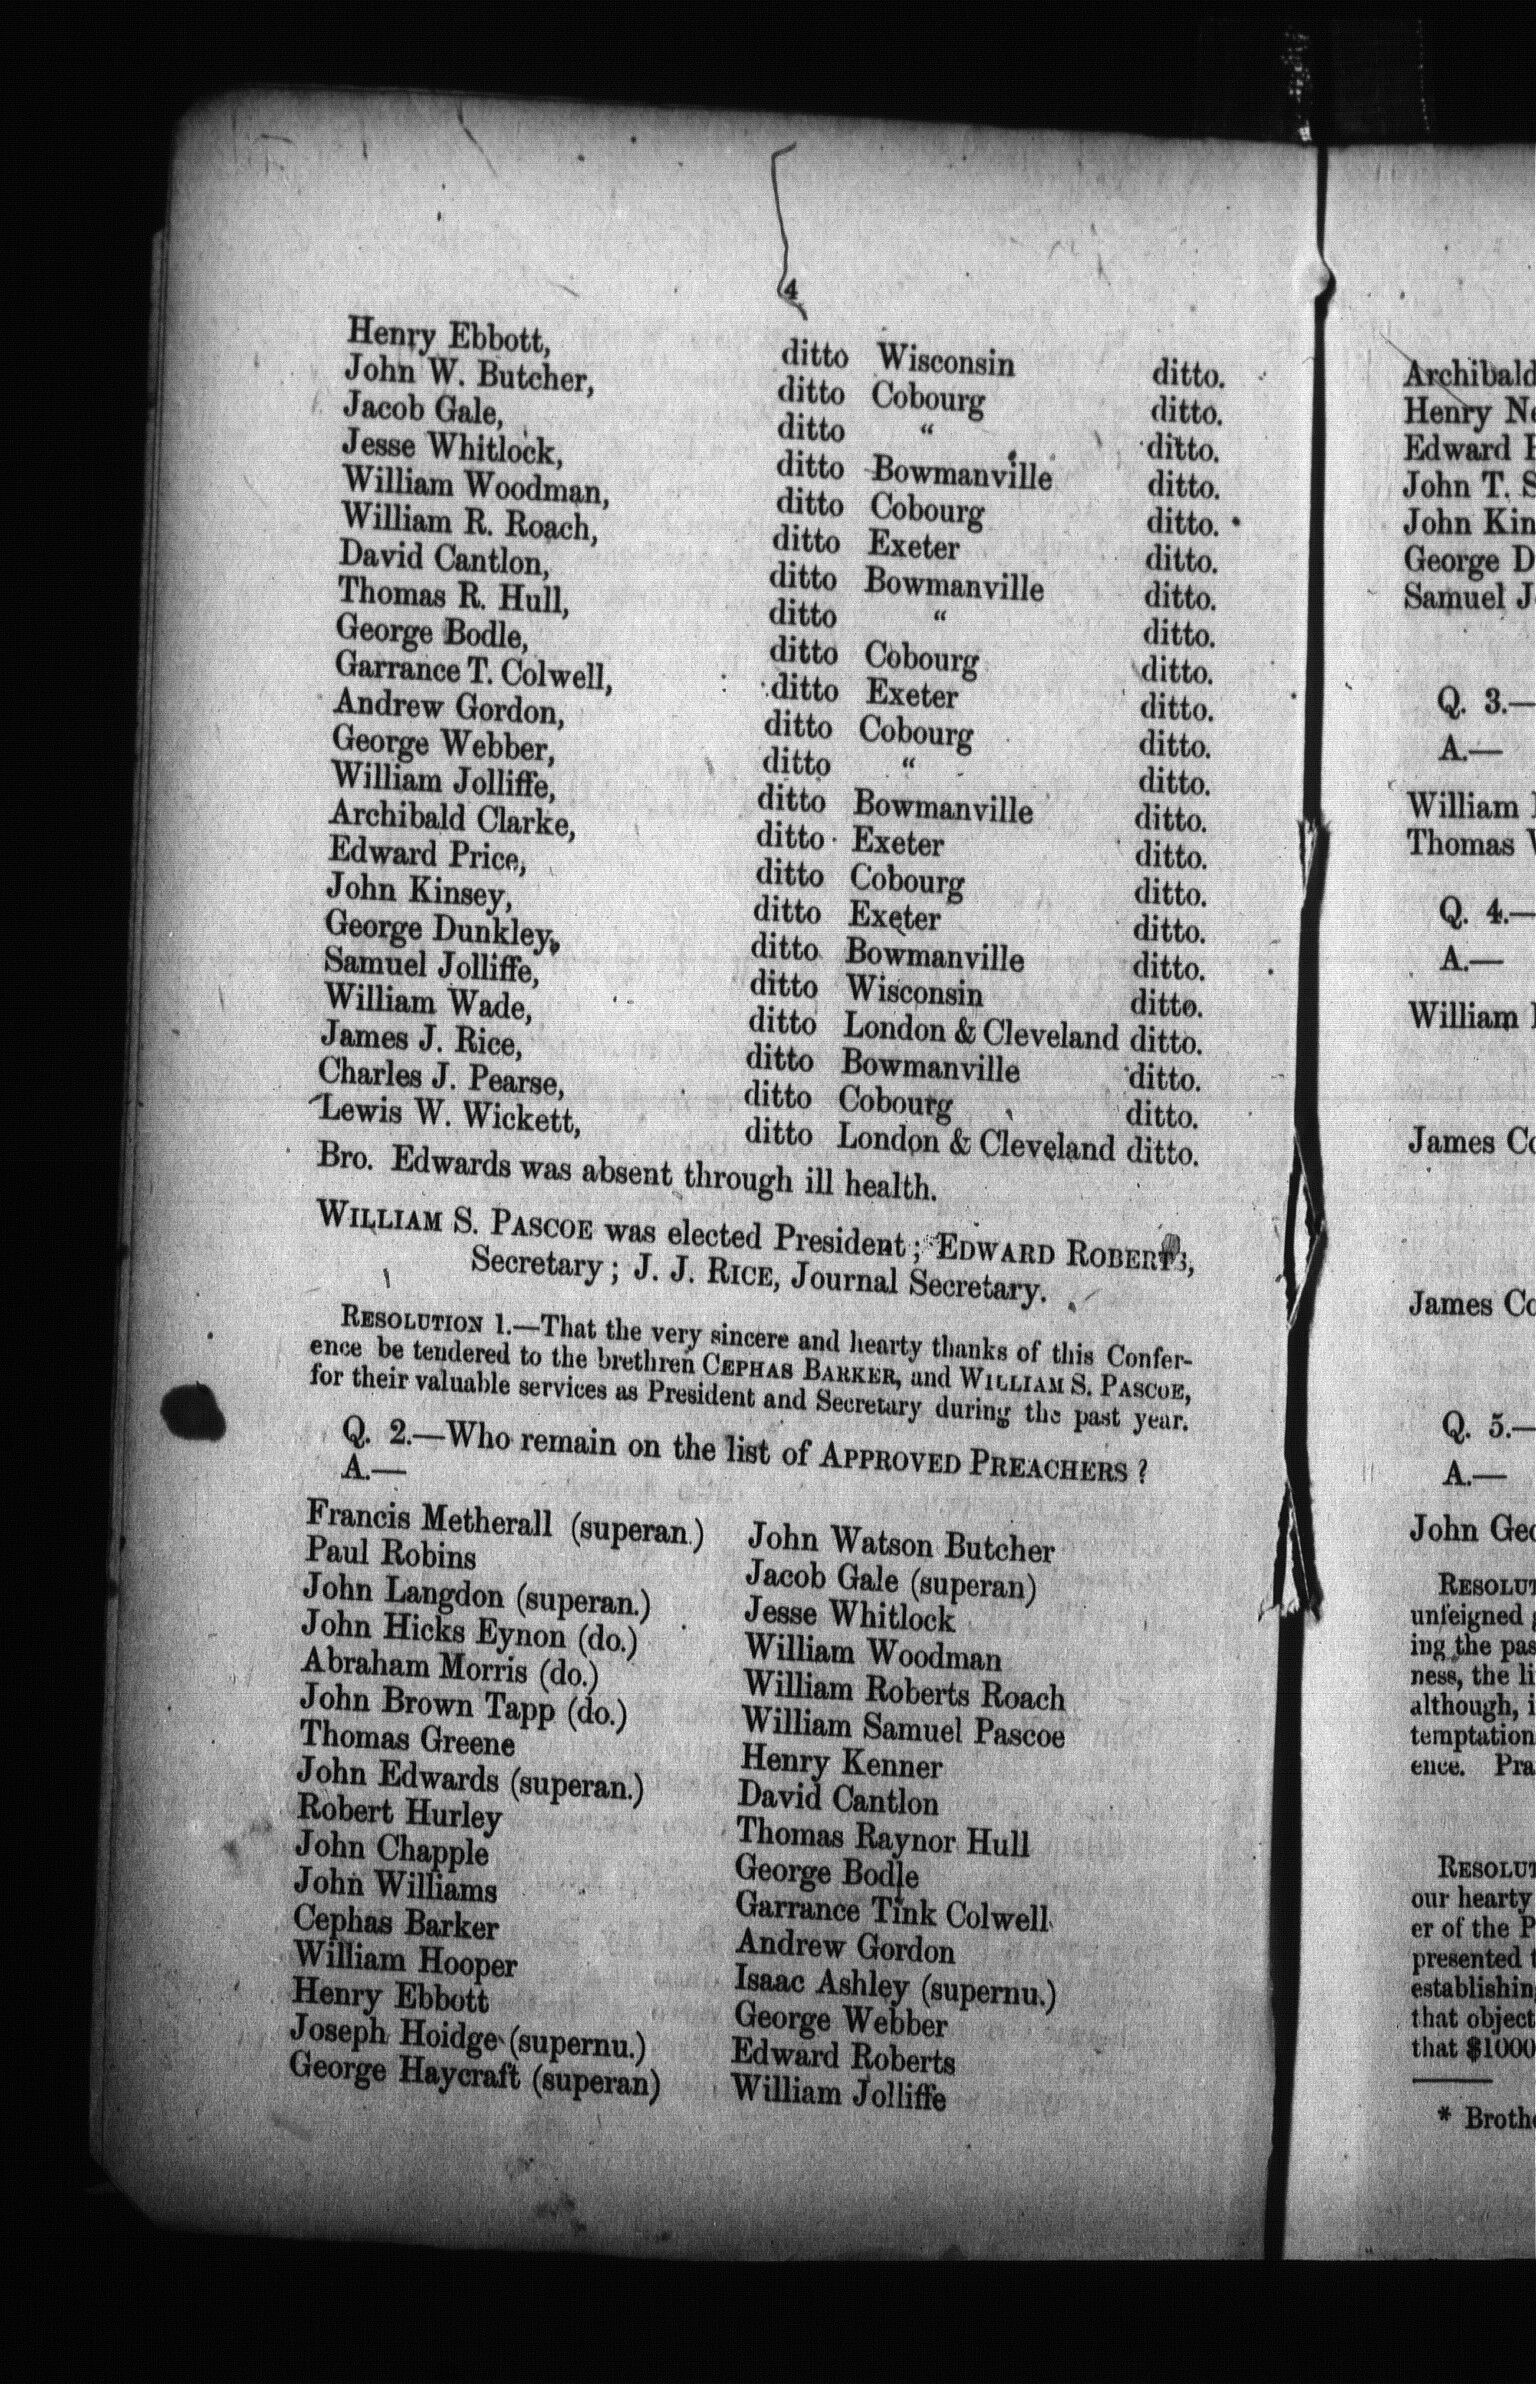 4
Henry Ebbott, ditto Wisconsin ditto.
John W. Butcher, ditto Cobourg ditto.
Jacob Gale, ditto “ ditto.
Jesse Whitlock, ditto Bowmanville ditto.
William Woodman, ditto Cobourg ditto.
William R. Roach, ditto Exeter ditto.
David Cantlon, ditto Bowmanville ditto.
Thomas R. Hull, ditto “ ditto.
George Bodle, ditto Cobourg ditto.
Garrance T. Colwell, ditto Exeter ditto.
Andrew Gordon, ditto Cobourg ditto.
George Webber, ditto “ ditto.
William Jolliffe, ditto Bowmanville ditto.
Archibald Clarke, ditto Exeter ditto.
Edward Price, ditto Cobourg ditto.
John Kinsey, ditto Exeter ditto.
George Dunkley, ditto Bowmanville ditto.
Samuel Jolliffe, ditto Wisconsin ditto.
William Wade, ditto London & Cleveland ditto.
James J. Rice, ditto Bowmanville ditto.
Charles J. Pearse, ditto Cobourg ditto.
Lewis W. Wickett, ditto London & Cleveland ditto.
Bro. Edwards was absent through ill health.
WILLIAM S. PASCOE was elected President; EDWARD ROBERTS,
Secretary; J. J. RICE, Journal Secretary.
RESOLUTION 1.—That the very sincere and hearty thanks of this Confer-
ence be tendered to the brethren CEPHAS BARKER, and WILLIAM S. PASCOE,
for their valuable services as President and Secretary during the past year.
Q. 2.—Who remain on the list of APPROVED PREACHERS?
A.—
Francis Metherall (superan.)
Paul Robins
John Langdon (superan.)
John Hicks Eynon (do.)
Abraham Morris (do.)
John Brown Tapp (do.)
Thomas Greene
John Edwards (superan.)
Robert Hurley
John Chapple
John Williams
Cephas Barker
William Hooper
Henry Ebbott
Joseph Hoidge (supernu.)
George Haycraft (superan)
John Watson Butcher
Jacob Gale (superan)
Jesse Whitlock
William Woodman
William Roberts Roach
William Samuel Pascoe
Henry Kenner
David Cantlon
Thomas Raynor Hull
George Bodle
Garrance Tink Colwell
Andrew Gordon
Isaac Ashley (supernu.)
George Webber
Edward Roberts
William Jolliffe
Archibald
Henry
Edward
John T.
John Kin
George D
Samuel J
Q. 3.—
A.—
William
Thomas
Q. 4.—
A.—
William
James Co
James Co
Q. 5.—
A.—
John Geo
RESOLUT
unfeigned
ing the pas
ness, the li
although, i
temptation
ence. Pra
RESOLUT
our hearty
er of the P
presented t
establishing
that object
that $1000
* Brothe